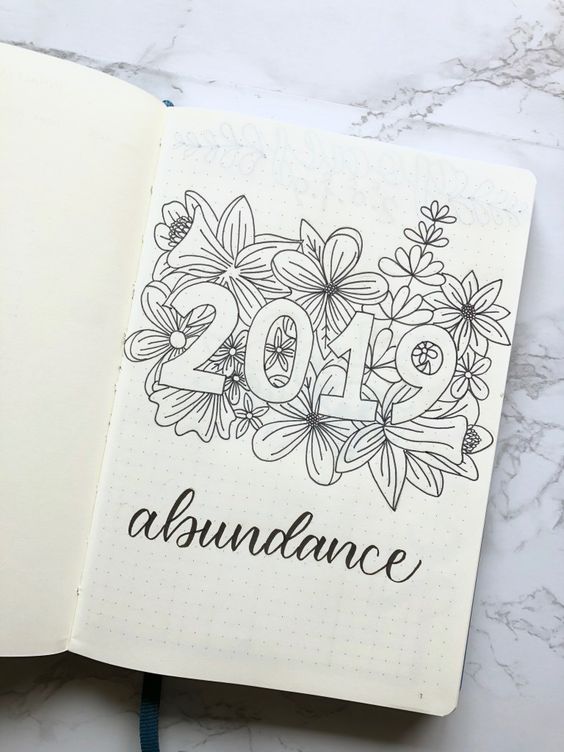 2019
abundance